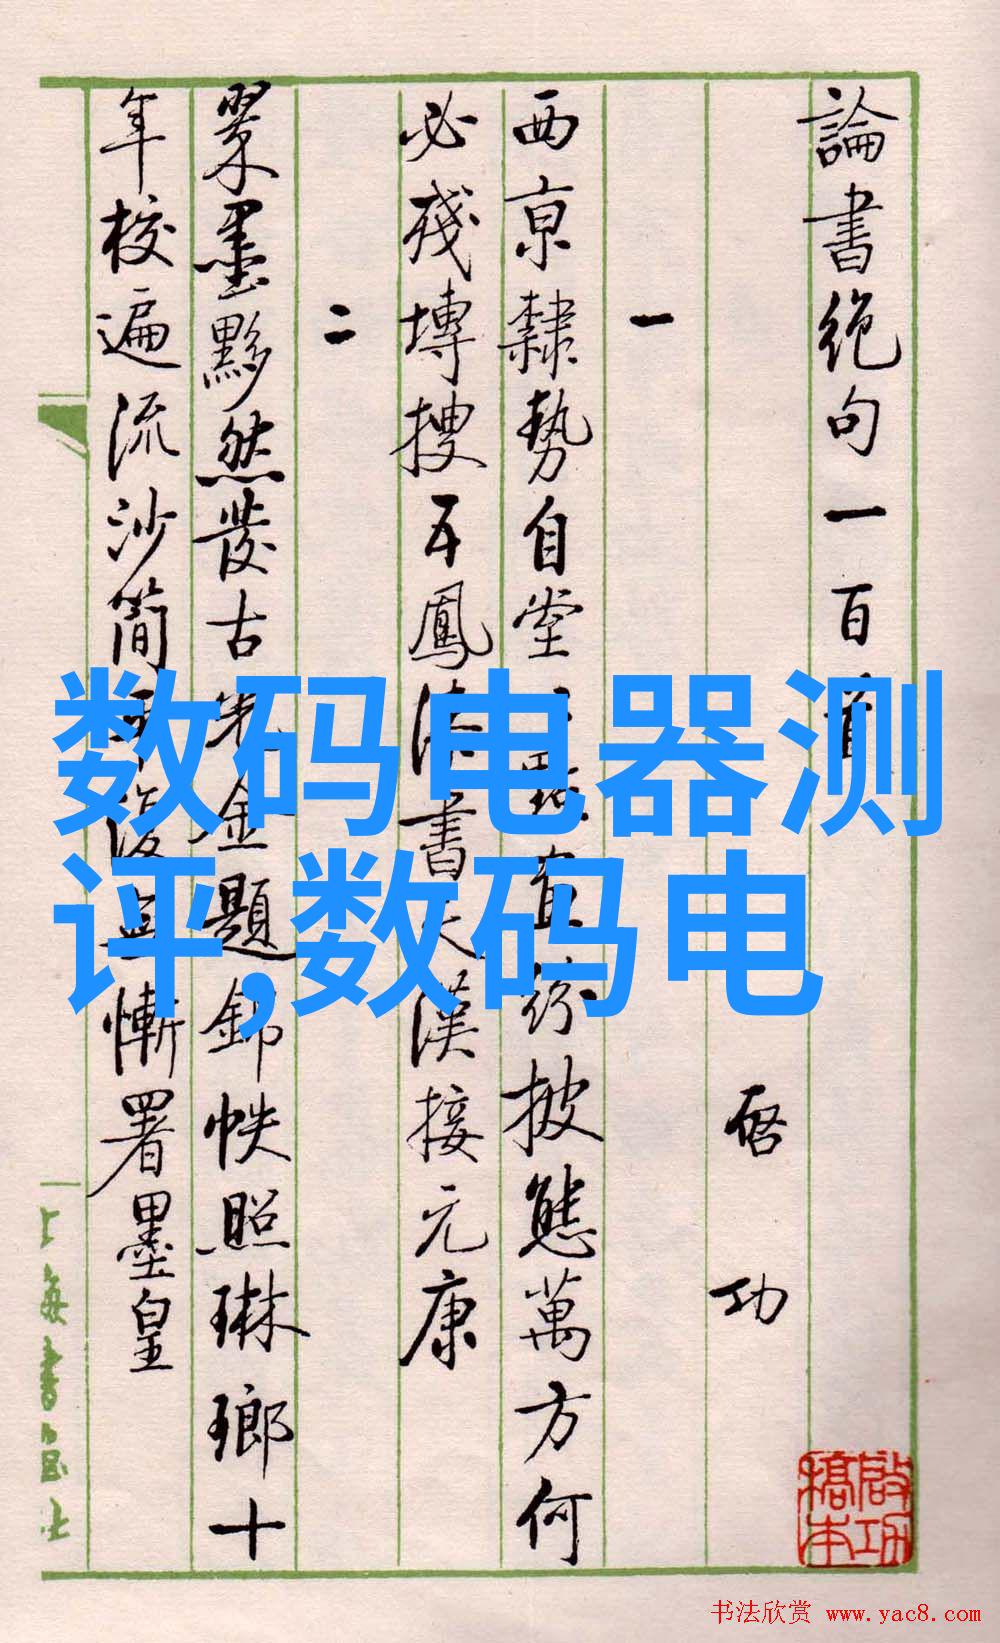 論書絶句一百首
啓功
一
西京隸勢自堂 直 披態萬方何
必殘塼搜五鳳 書 漢接元康
二
翠墨黟然發古 金題錦帙照琳瑯十
年校遍流沙簡 慚署墨皇
数码电器测
评,数码电
上海書画社
啟功
稿本
书法欣赏 www.yac8.com